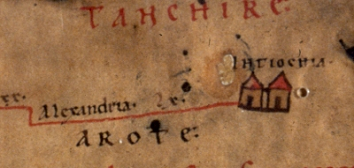 TANCHIRE
ANTIOCHIA·
xx·
Alexandria· xx·
AROTE: